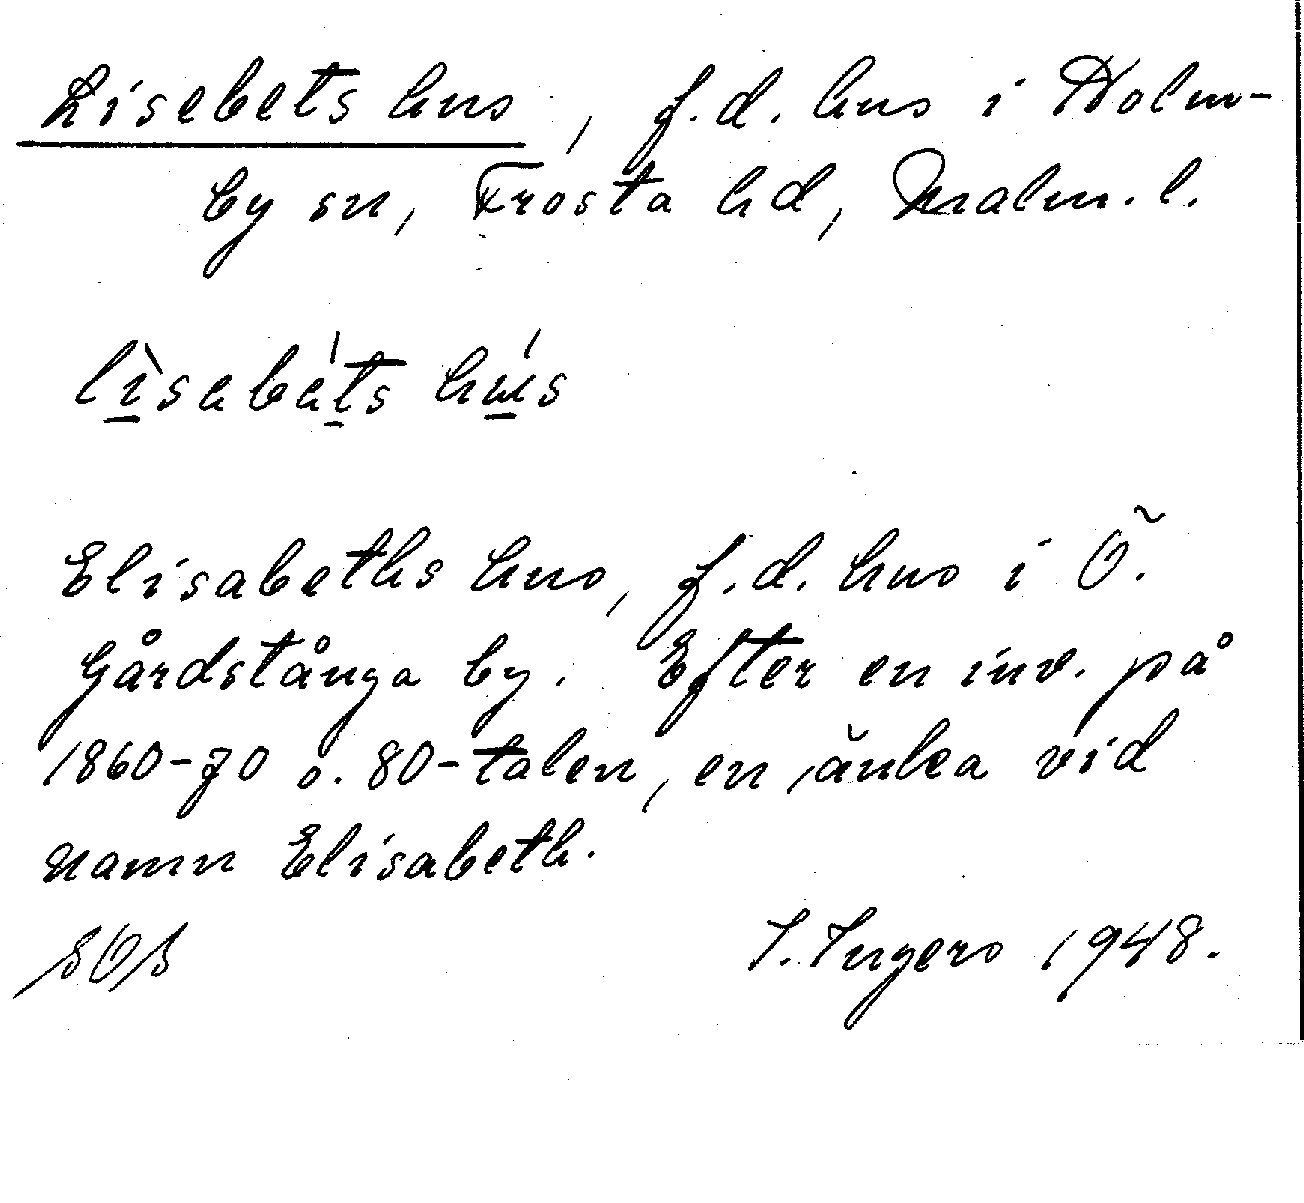 Lisebets hus, f.d. hus i Holm-
by sn, Frosta hd, Malm. l.
lìsabáts hús
Elisabeths hus, f.d. hus i Ö.
Gårdstånga by. Efter en inv. på
1860-70 o. 80-talen, en änka vid
namn Elisabeth.
I. Ingers 1948.